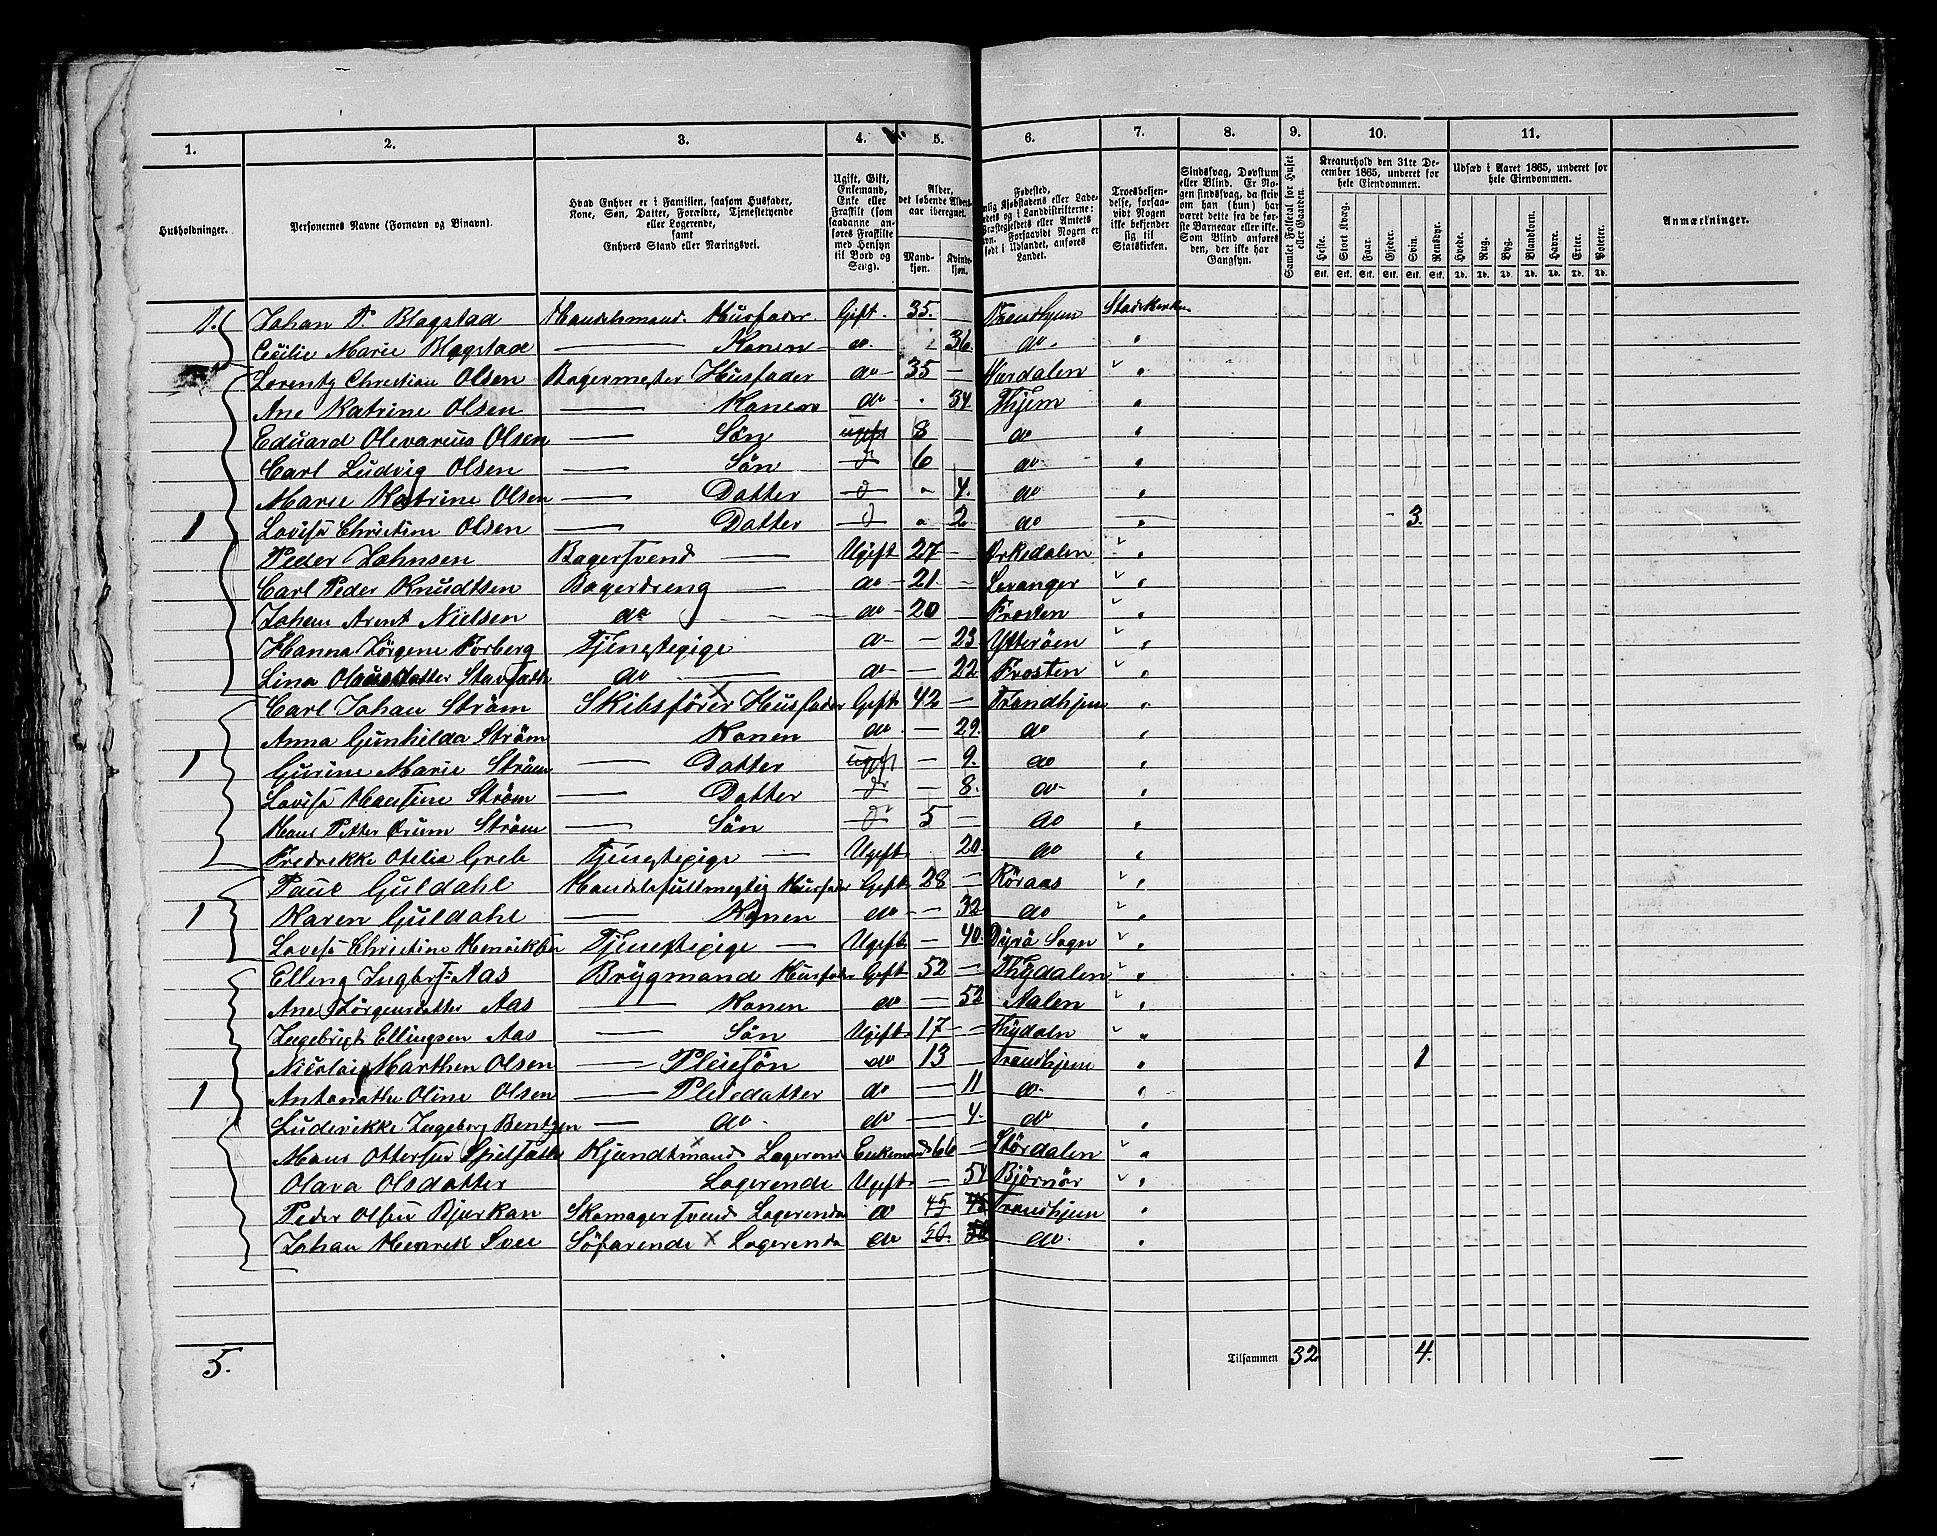 1. 2. 3. 4. 5. 6. 7. 8. 9. 10. 11.
Husholdninger. Personernes Navne (Fornavn og Binavn). Hvad Enhver er i Familien, saasom Husfader, Kone, Søn, Datter, Forældre, Tjenestetyende eller Logerende, samt Enhvers Stand eller Næringsvei. Ugift, Gift, Enkemand, Enke eller Fraskilt (som saadanne anføres Fraskilte med Hensyn til Bord og Seng). Alder, det løbende Aldersaar iberegnet. Mandkjøn. Kvindekjøn. Fødested, Troesbekjendelse, forsaavidt Nogen ikke bekjender sig til Statskirken. Sindssvag, Døvstum eller Blind. Er Nogen sindssvag, da skrives om han (hun) har været dette fra de første Barneaar eller ikke. Som Blind anføres den, der ikke har Gangsyn. Samlet Folketal for Huset eller Gaarden. Kreaturhold den 31te December 1865, underet for hele Eiendommen. Heste. Stort Kvæg. Faar. Gjeder. Svin. Rensdyr. Udsæd i Aaret 1865, underet for hele Eiendommen. Hvede. Rug. Byg. Blandkorn. Havre. Erter. Poteter. Anmærkninger.
1. Johan P. Blogstad Handelsmand. Husfader Gift. 35. Trondhjem Statskirken
Cecilie Marie Blogstad Konen do. 36. do. "
Lorentz Christian Olsen Bagermester Husfader do 35 Værdalen "
Ane Katrine Olsen Konen do 34. Thjem "
Eduard Olevarius Olsen Søn ugift 8 do "
Carl Ludvig Olsen Søn d 6 do "
Marie Katrine Olsen Datter d 4. do "
1 Lovise Christine Olsen Datter d 2 do " 3.
Peder Johnsen Bagersvend Ugift 27 Orkedalen "
Carl Peder Knudtsen Bagerdreng do 21. Levanger "
Johan Arent Nielsen do do 20 Frosten "
Hanna Jørgene Forberg Tjenestepige do 23 Ytterøen "
Lina do do 22 Frosten "
Carl Johan Strøm Skibsfører Husfader Gift 42 Trondhjem "
Anna Gunhilda Strøm Konen do 29. do "
1 Gurine Marie Strøm Datter ugift 9. do "
Lovise Hansine Strøm Datter do 8. do "
Hans Petter Strøm Søn d 5 do "
Fredrikke Otelia Greb Tjenestepige Ugift 20 do "
Paul Guldahl Handelsfuldmegtig Husfader Gift 28 Röraas "
1 Karen Guldahl Konen do 32 do "
Lovise Christine Henriksen Tjenestepige Ugift 40. Dyrö Sogn "
Elling Ingbrts: Aas Brygmand Husfader Gift 52 Thydalen "
Ane Jørgensdatter Aas Konen do 52 Aalen "
Ingebrigt Ellingsen Aas Søn Ugift 17 Thydalen "
Nicolai Marthen Olsen Pleiesøn do 13 Trondhjem " 1
1 Antonette Oline Olsen Pleiedatter do 11 do "
Ludevikke Ingeborg Bentzen do. do 4. do "
Hans Ottersen Logerende Enkemand 66 Stördalen "
Olava Olsdatter Logerende Ugift 54 Björnör "
Peder Olsen Bjerkan Skomagersvend Logerende do 45 45 Trondhjem "
Johan Henrik Svee Söfarende Logerende do 50. 50 do. "
5. Tilsammen 32 4.